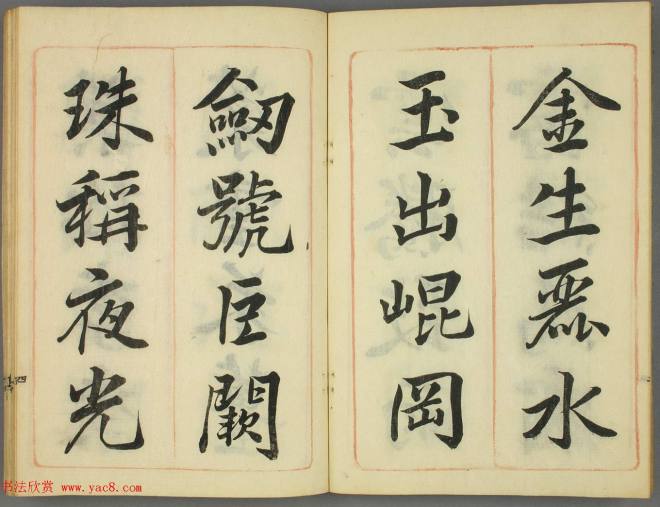 金生麗水
玉出崐岡
劔號巨闕
珠稱夜光
书法欣赏 www.yac8.com